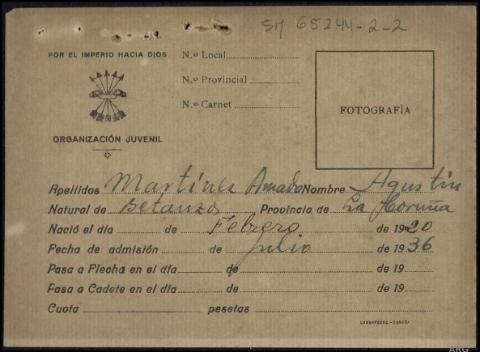 SM 65244-2-2
POR EL IMPERIO HACIA DIOS
N.º Local
N.º Provincial
N.º Carnet
FOTOGRAFÍA
ORGANIZACIÓN JUVENIL
Apellidos Martínez Amado Nombre Agustin
Natural de Betanzos Provincia de La Coruña
Nació el día de Febrero de 1920
Fecha de admisión de julio de 1936
Pasa a Flecha en el día de de 19
Pasa a Cadete en el día de de 19
Cuota pesetas
ARG